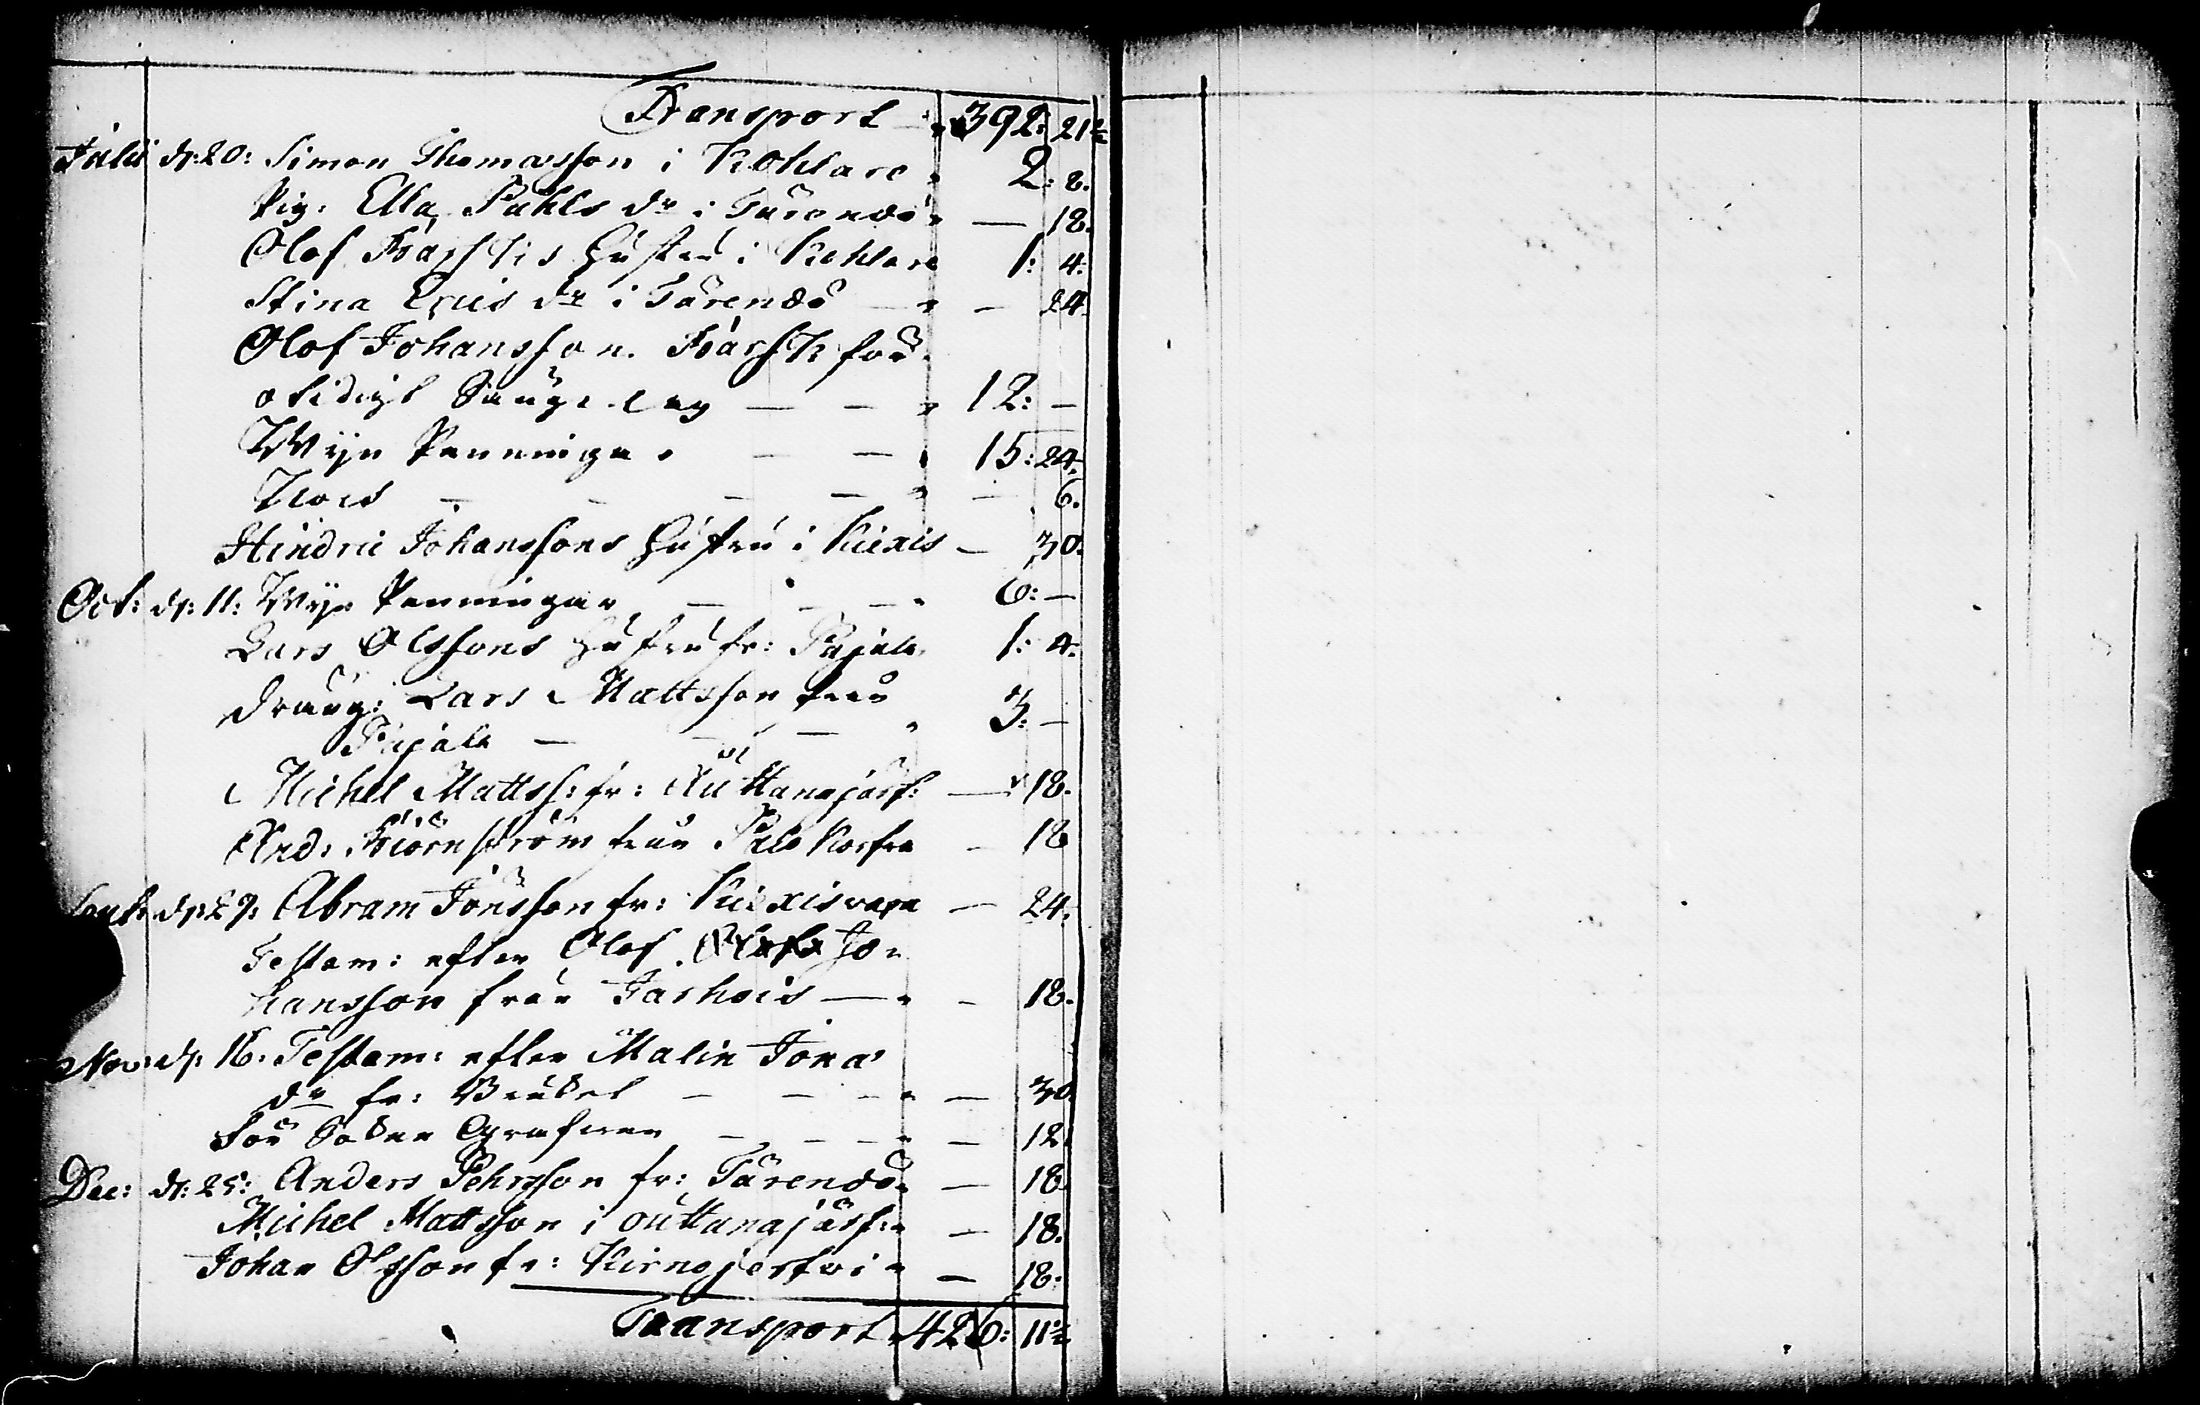 Transport 392: 21½
Julii d: 20: Simon Thomasson i Kohlare 2: 8.
Pig: Ella Påhls dr i Tärendö — 18.
Olof Barsks hustru i Kohlare 1: 4:
Stina Erics dr i Tärendö — 24.
Olof Johansson Barsk för
otidigt Sänge lag — — 12: —
Wijn Penningar — — 15: 24.
— — — — 6.
Hindric Johanssons hustru i Kiexis — 30.
Oct: d: 11: Wijn Penningar — — — 6: —
Lars Olssons hustru fr: Pajala 1: 4.
dräng: Lars Mattsson från 3: —
Pajala — — —
Michel Mattss: fr: Auttanajärf: — 18.
And: Biörnström från Palokorfva — 18
d: 29: Abram Jönsson fr: Kiexisvara — 24.
Testam: efter Olof Jo-
hansson från Jarhois — — 18.
Nov: d: 16: Testam: efter Malin Jona
dr fr: — — — — 30.
för — — — — 12.
Dec: d: 25: Anders Pehrsson fr: Tärendö — 18.
Michel Mattsson i outtanajärf: — 18.
Johan Olsson fr: Kirnojerfwi — 18.
Transport 426: 11½